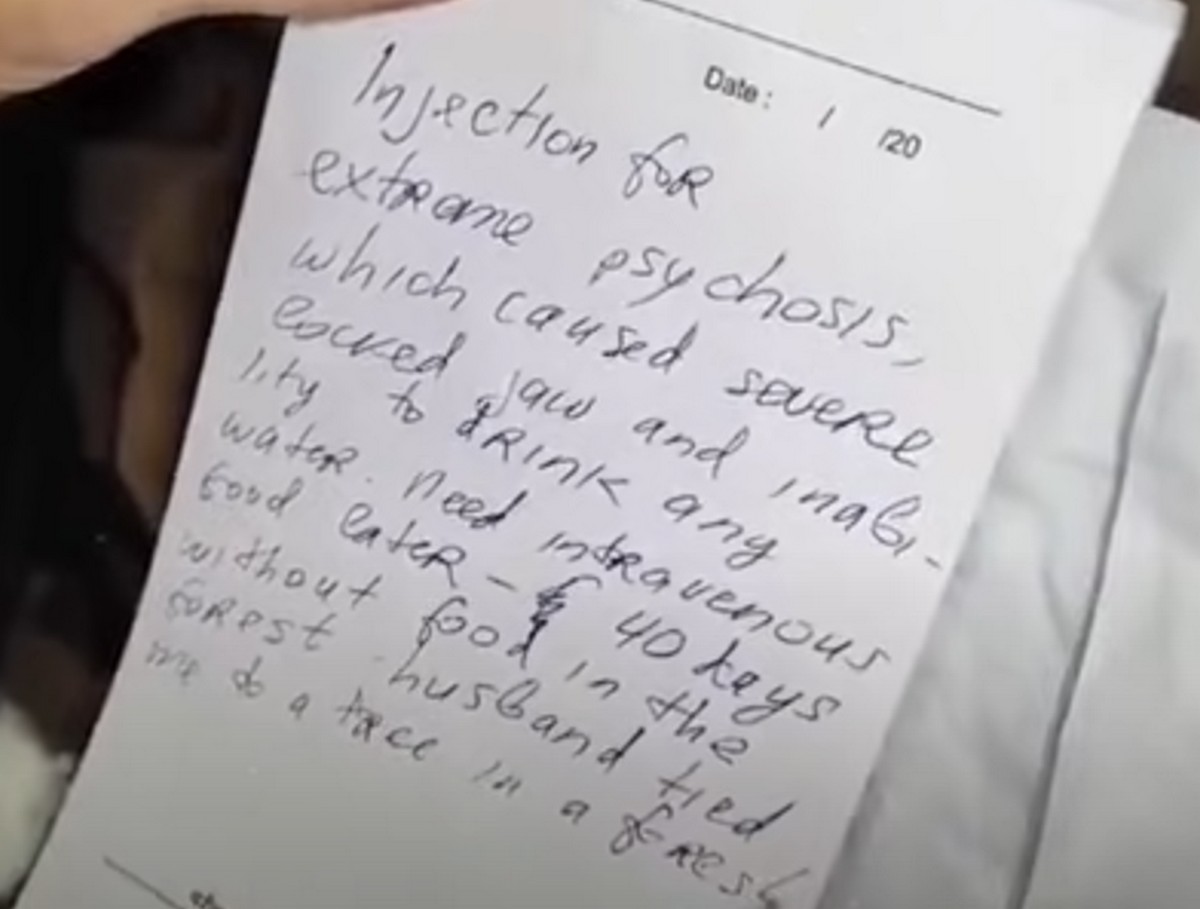 Date: / /20
Injection for
extreme psychosis,
which caused severe
locked jaw and inabi-
lity to drink any
water. need intravenous
food later - 40 days
without food in the
forest. husband tied
me to a tree in a forest